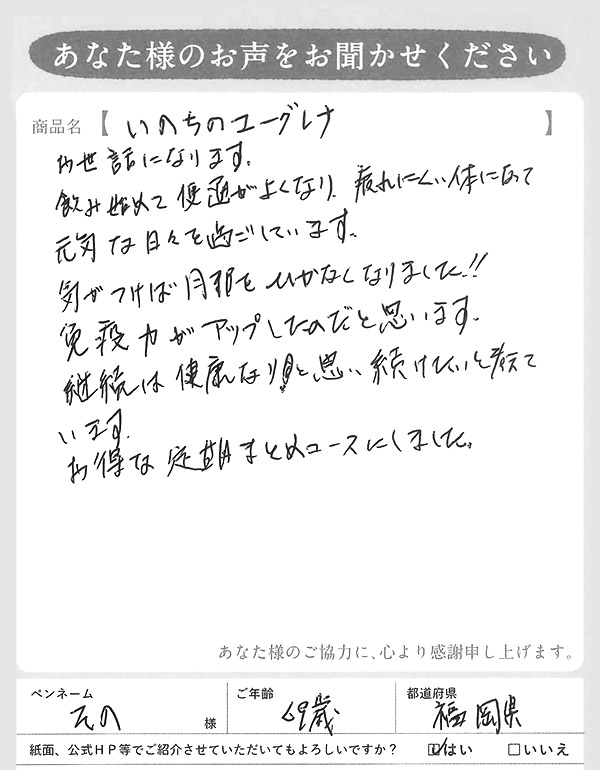 あなた様のお声をお聞かせください
商品名【いのちのユーグレナ】
お世話になります。
飲み始めて便通がよくなり、疲れにくい体になって
元気な日々を過ごしています。
気がつけば風邪をひかなくなりました!!
免疫力がアップしたのだと思います。
継続は健康なりと思い続けたいと考えて
います。
お得な定期まとめコースにしました。
あなた様のご協力に、心より感謝申し上げます。
ペンネーム ご年齢 都道府県
その 様 69歳 福岡県
紙面、公式HP等でご紹介させていただいてもよろしいですか? ☑はい □いいえ